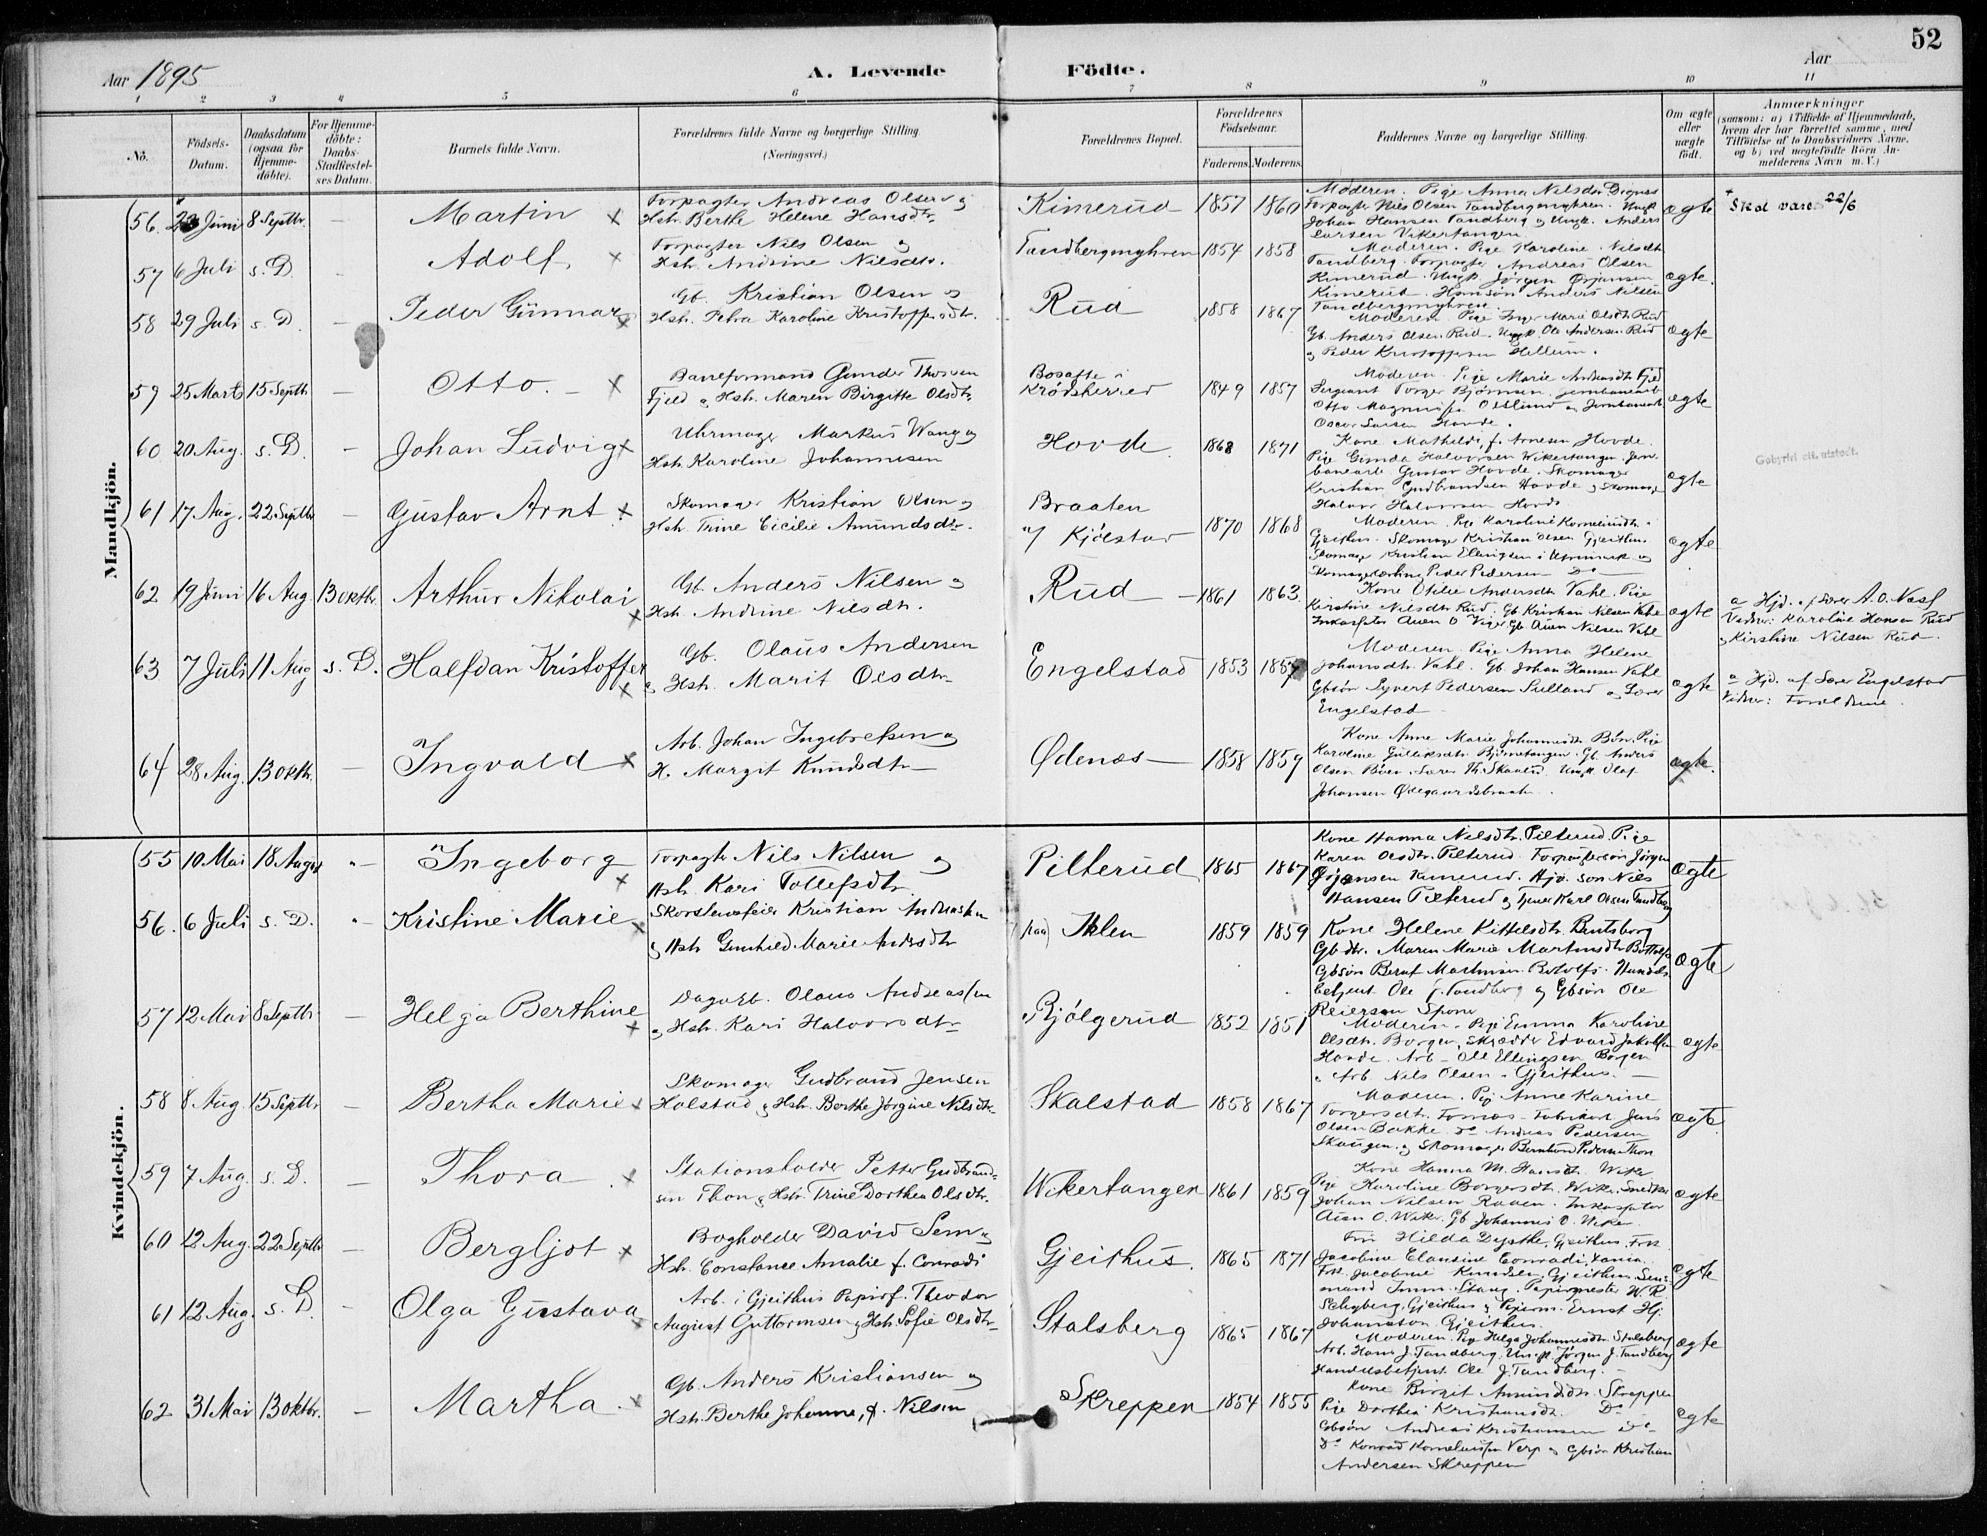 52
Aar 1895
A. Levende Födte.
Aar
1 2 3 4 5 6 7 8 9 10 11
No.
Födsels-Datum.
Daabsdatum (ogsaa for Hjemme-döbte).
For Hjemme-döbte: Daabs-Stadfæstel-ses Datum.
Barnets fulde Navn.
Forældrenes fulde Navne og borgerlige Stilling. (Næringsvei.)
Forældrenes Bopæl.
Forældrenes Födselsaar.
Faderens. Moderens.
Faddernes Navne og borgerlige Stilling.
Om ægte eller uægte födt.
Anmærkninger (saasom: a) i Tilfælde af Hjemmedaab, hvem der har forrettet samme, med Tilföielse af to Daabsvidners Navne, og b) ved uægtefödte Börn An-melderens Navn m. V.)
Mandkjön.
56. 23 Juni 8 Septbr. — Martin x
Forpagter Andreas Olsen og
Hstr. Berthe Helene Hansdtr.
Kimerud 1857 1860
Moderen. Pige Anna Nilsdtr
Forpagter Nils Olsen Tandbergmyhren. Ungk.
Johan Hansen Tandberg og Ungk. Anders
Larsen Vikertangen
ægte
Skal være 22/6
57 6 Juli s. D. Adolf. x
Forpagter Nils Olsen og
Hstr. Andrine Nilsdtr.
Tandbergmyhren 1854 1858
Moderen. Pige Karoline Nilsdtr
Tandberg. Forpagter Andreas Olsen
Kimerud. Ungk. Jörgen Örjansen
Kimerud. Anders Nilsen
Tandbergmyhren
ægte.
58 29 Juli s. D. — Peder Gunnar x
Gb. Kristian Olsen og
Hstr. Petra Karoline Kristoffersdtr.
Rud 1858 1867
Moderen. Pige Inger Marie Olsdtr. Rud
Gb. Anders Olsen Rud. Ungk. Ole Andersen Rud
og Peder Kristoffersen Hellum.
ægte
59 25 Marts 15 Septbr — Otto. — x
Baneformand Gunder Thorsen
Fjeld og Hstr. Maren Birgitte Olsdtr.
Bosatte i
Krödsherred 1849 1857
Moderen. Pige Marie Fjeld
Sergeant Torger Björnsen, Jernbanearb.
Otto og Jernbanearb.
Oscar Larsen Hovde.
ægte
60 20 Aug. s. D. — Johan Ludvig x
Uhrmager Markus Wang og
Hstr. Karoline Johannesen
Hovde. 1868 1871
Kone Mathilde f. Arnesen Hovde.
Pige Gunda Halvorsen Wikertangen. Jern-
banearb. Gustav Hovde. Skomager
Kristian Gudbrandsen Hovde og Skomag.
Halvor Halvorsen Hovde
ægte
61 17 Aug. 22 Septbr — Gustav Arnt. x
Skomager Kristian Olsen og
Hstr. Trine Cicilie Amundsdtr.
Braaten
u/ Kjölstad 1870 1868
Moderen. Pige Karoline Korneliusdtr.
Gjeithus. Skomager Kristian Olsen Gjeithus.
Skomager Kristian Ellingsen i og
Skomagerlærling Peder Pedersen Do
ægte
62 19 Juni 16 Aug 13 oktbr. Arthur Nikolai x
Gb. Anders Nilsen og
Hstr. Andrine Nilsdtr.
Rud — 1861 1863.
Kone Otilie Andersdtr. Vahl. Pige
Kirstine Nilsdtr Rud. Gb. Kristian Nilsen Vahl
Inkassator Auen O Viger. Gb. Auen Nilsen Vahl
ægte
a Hjd. af Lærer A. O. Næss
Vidner: Karoline Hansen Rud
og Kirstine Nilsen Rud.
63 7 Juli 11 Aug s. D. Halfdan Kristoffer x
Gb. Olaus Andersen
og Hstr. Marit Olsdtr.
Engelstad 1853 1857
Moderen. Pige Anna Helene
Johansdtr. Vahl. Gb. Johan Hansen Vahl
Gbsön Syvert Pedersen og Lærer
Engelstad
ægte
a Hjd. af Lærer Engelstad
Vidner: Forældrene.
64 28 Aug. 13 oktbr. — Ingvald x
Arb. Johan Ingebretsen og
H. Margit Knudsdtr
Ödenæs — 1858 1859
Kone Anne Marie Johannesdtr. Böen. Pige
Karoline Gulliksdtr. Bjertnetangen. Gb. Anders
Olsen Böen. Lærer Th. Skaalid. Ungk. Olaf
Johansen Ödegaardsbraaten.
ægte.
Gebyrfri att. utstedt.
Kvindekjön.
55 10 Mai 18 August — Ingeborg x
Forpagter Nils Nilsen og
Hstr. Kari Tollefsdtr.
Pilterud 1865 1867
Kone Hanna Nilsdtr. Pilterud. Pige
Karen Olsdtr. Pilterud. Forpagtersön Jörgen
Örjansen Kimerud. Gbr. sön Nils
Hansen Pilterud og Tjener Karl Olsen Tandberg
ægte
56. 6 Juli s. D. — Kristine Marie x
Skorstensfeier Kristian Andreassen
og Hstr Gunhild Marie Andersdtr
paa Iklen 1859 1859
Kone Helene Kittelsdtr. Buttsborg
Gbdtr. Maren Marie Martinsdtr Bottolfs
Gbsön Bernt Martinsen Botolfs. Handels-
betjent Ole J. Tandberg og Gbsön Ole
Reiersen Spone
ægte
57 12 Mai 8 Septbr — Helga Berthine x
Dagarb. Olaus Andreassen
og Hstr. Kari Halvorsdtr
Bjölgerud 1852 1851
Moderen. Pige Emma Karoline
Olsdtr. Borgen, Skrædder Edvard Jakobsen
Hovde. Arb. Ole Ellingsen Borgen
og Arb. Nils Olsen Gjeithus. —
ægte
58 8 Aug. 15 Septbr — Bertha Marie x
Skomager Gudbrand Jensen
Halstad og Hstr. Berthe Jörgine Nilsdtr.
Skalstad 1858 1867
Moderen. Pige Anne Karine
Torgersdtr. Fomos. Fabrikarb. Jens
Olsen Bakke. Do Andreas Pedersen
Skaugen og Skomager Bernhard Pedersen Thon
ægte.
59 7 Aug. s. D. — Thora x
Stationsholder Petter Gudbrand-
sen Thon og Hstr. Trine Dorthea Olsdtr.
Wikertangen 1861 1859
Kone Hanna M. Hansdtr. Wiker
Pige Karoline Borgersdtr. Wiker. Snedker
Johan Nilsen Raaen. Inkassator
Auen O. Wiker. Gb. Johannes O. Wiker
ægte
60 12 Aug. 22 Septbr — Bergljot x
Bogholder David Sem og
Hstr. Constance Amalie f. Conradi
Gjeithus. 1865 1871
Fru Hilda Dysthe, Gjeithus, Frk.
Jacobine Clausine Conradi,
Frk. Jacobine Knudsen Gjeithus.
Papirmester W. R.
Gjeithus og Papirm. Ernst Hj.
Johanston Gjeithus.
ægte
61 12 Aug. s. D. — Olga Gustava x
Arb. i Gjeithus Papirf. Theodor
August Guttormsen og Hstr. Sofie Olsdtr.
Stalsberg 1865 1867
Moderen. Pige Helga Johannesdtr. Stalsberg
Arb. Hans J. Tandberg. Ungk. Jörgen J. Tandberg
Handelsbetjent Ole J. Tandberg.
ægte
62 31 Mai 13 oktbr. — Martha. x
Gb. Anders Kristiansen og
Hstr. Berthe Johanne, f. Nilsen
Skreppen 1854 1855
Kone Birgit Amundsdtr. Skreppen
Pige Dorthea Kristiansdtr. Do
Gbsön Andreas Kristiansen Do
Do Konrad Korneliussen Verp og Gbsön Kristian
Andersen Skreppen
ægte